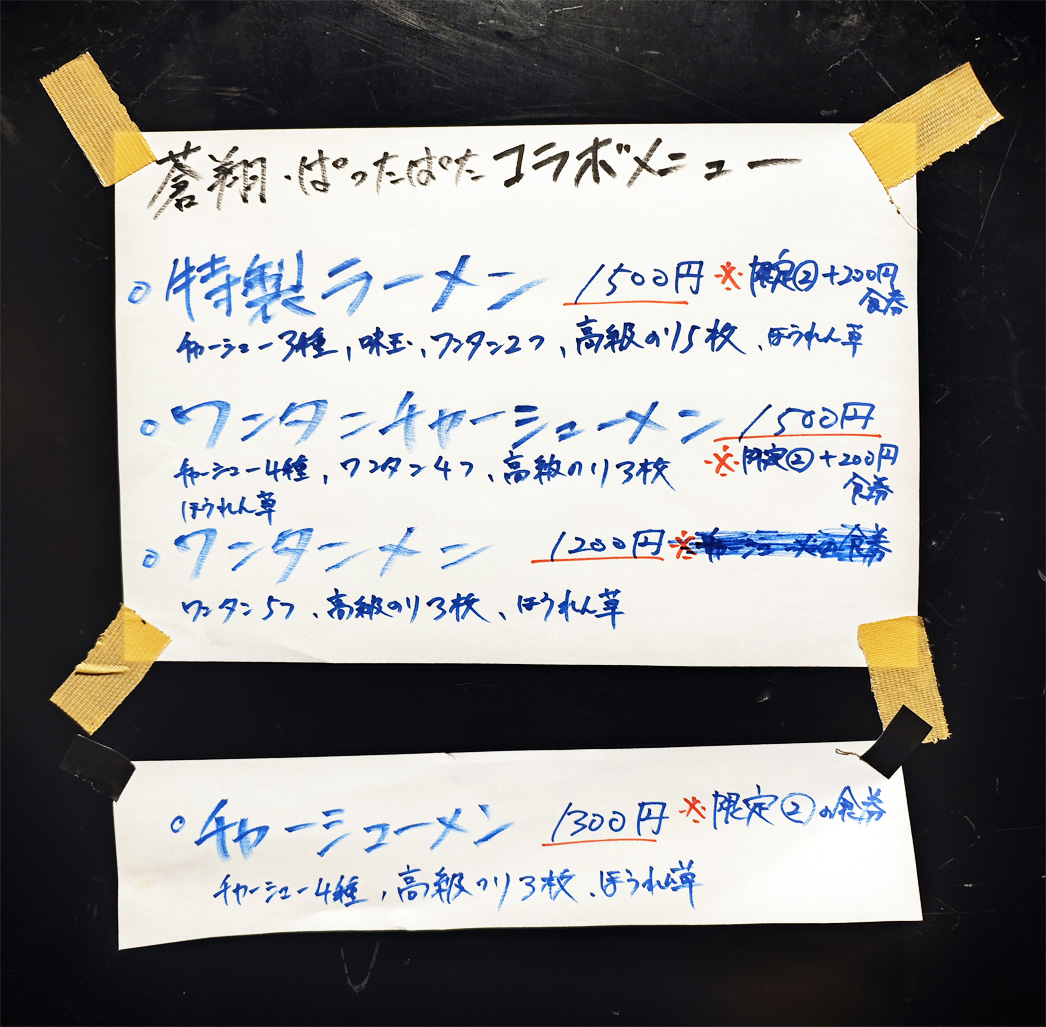 蒼翔・ぱったぱた コラボメニュー
○特製ラーメン 1500円 ※限定②+200円
食券
チャーシュー3種、味玉、ワンタン2つ、高級のり5枚、ほうれん草
○ワンタンチャーシューメン 1500円
チャーシュー4種、ワンタン4つ、高級のり3枚 ※限定②+200円
食券
ほうれん草
○ワンタンメン 1200円 ※チャーシューメンの食券
ワンタン5つ、高級のり3枚、ほうれん草
○チャーシューメン 1300円 ※限定②の食券
チャーシュー4種、高級のり3枚、ほうれん草